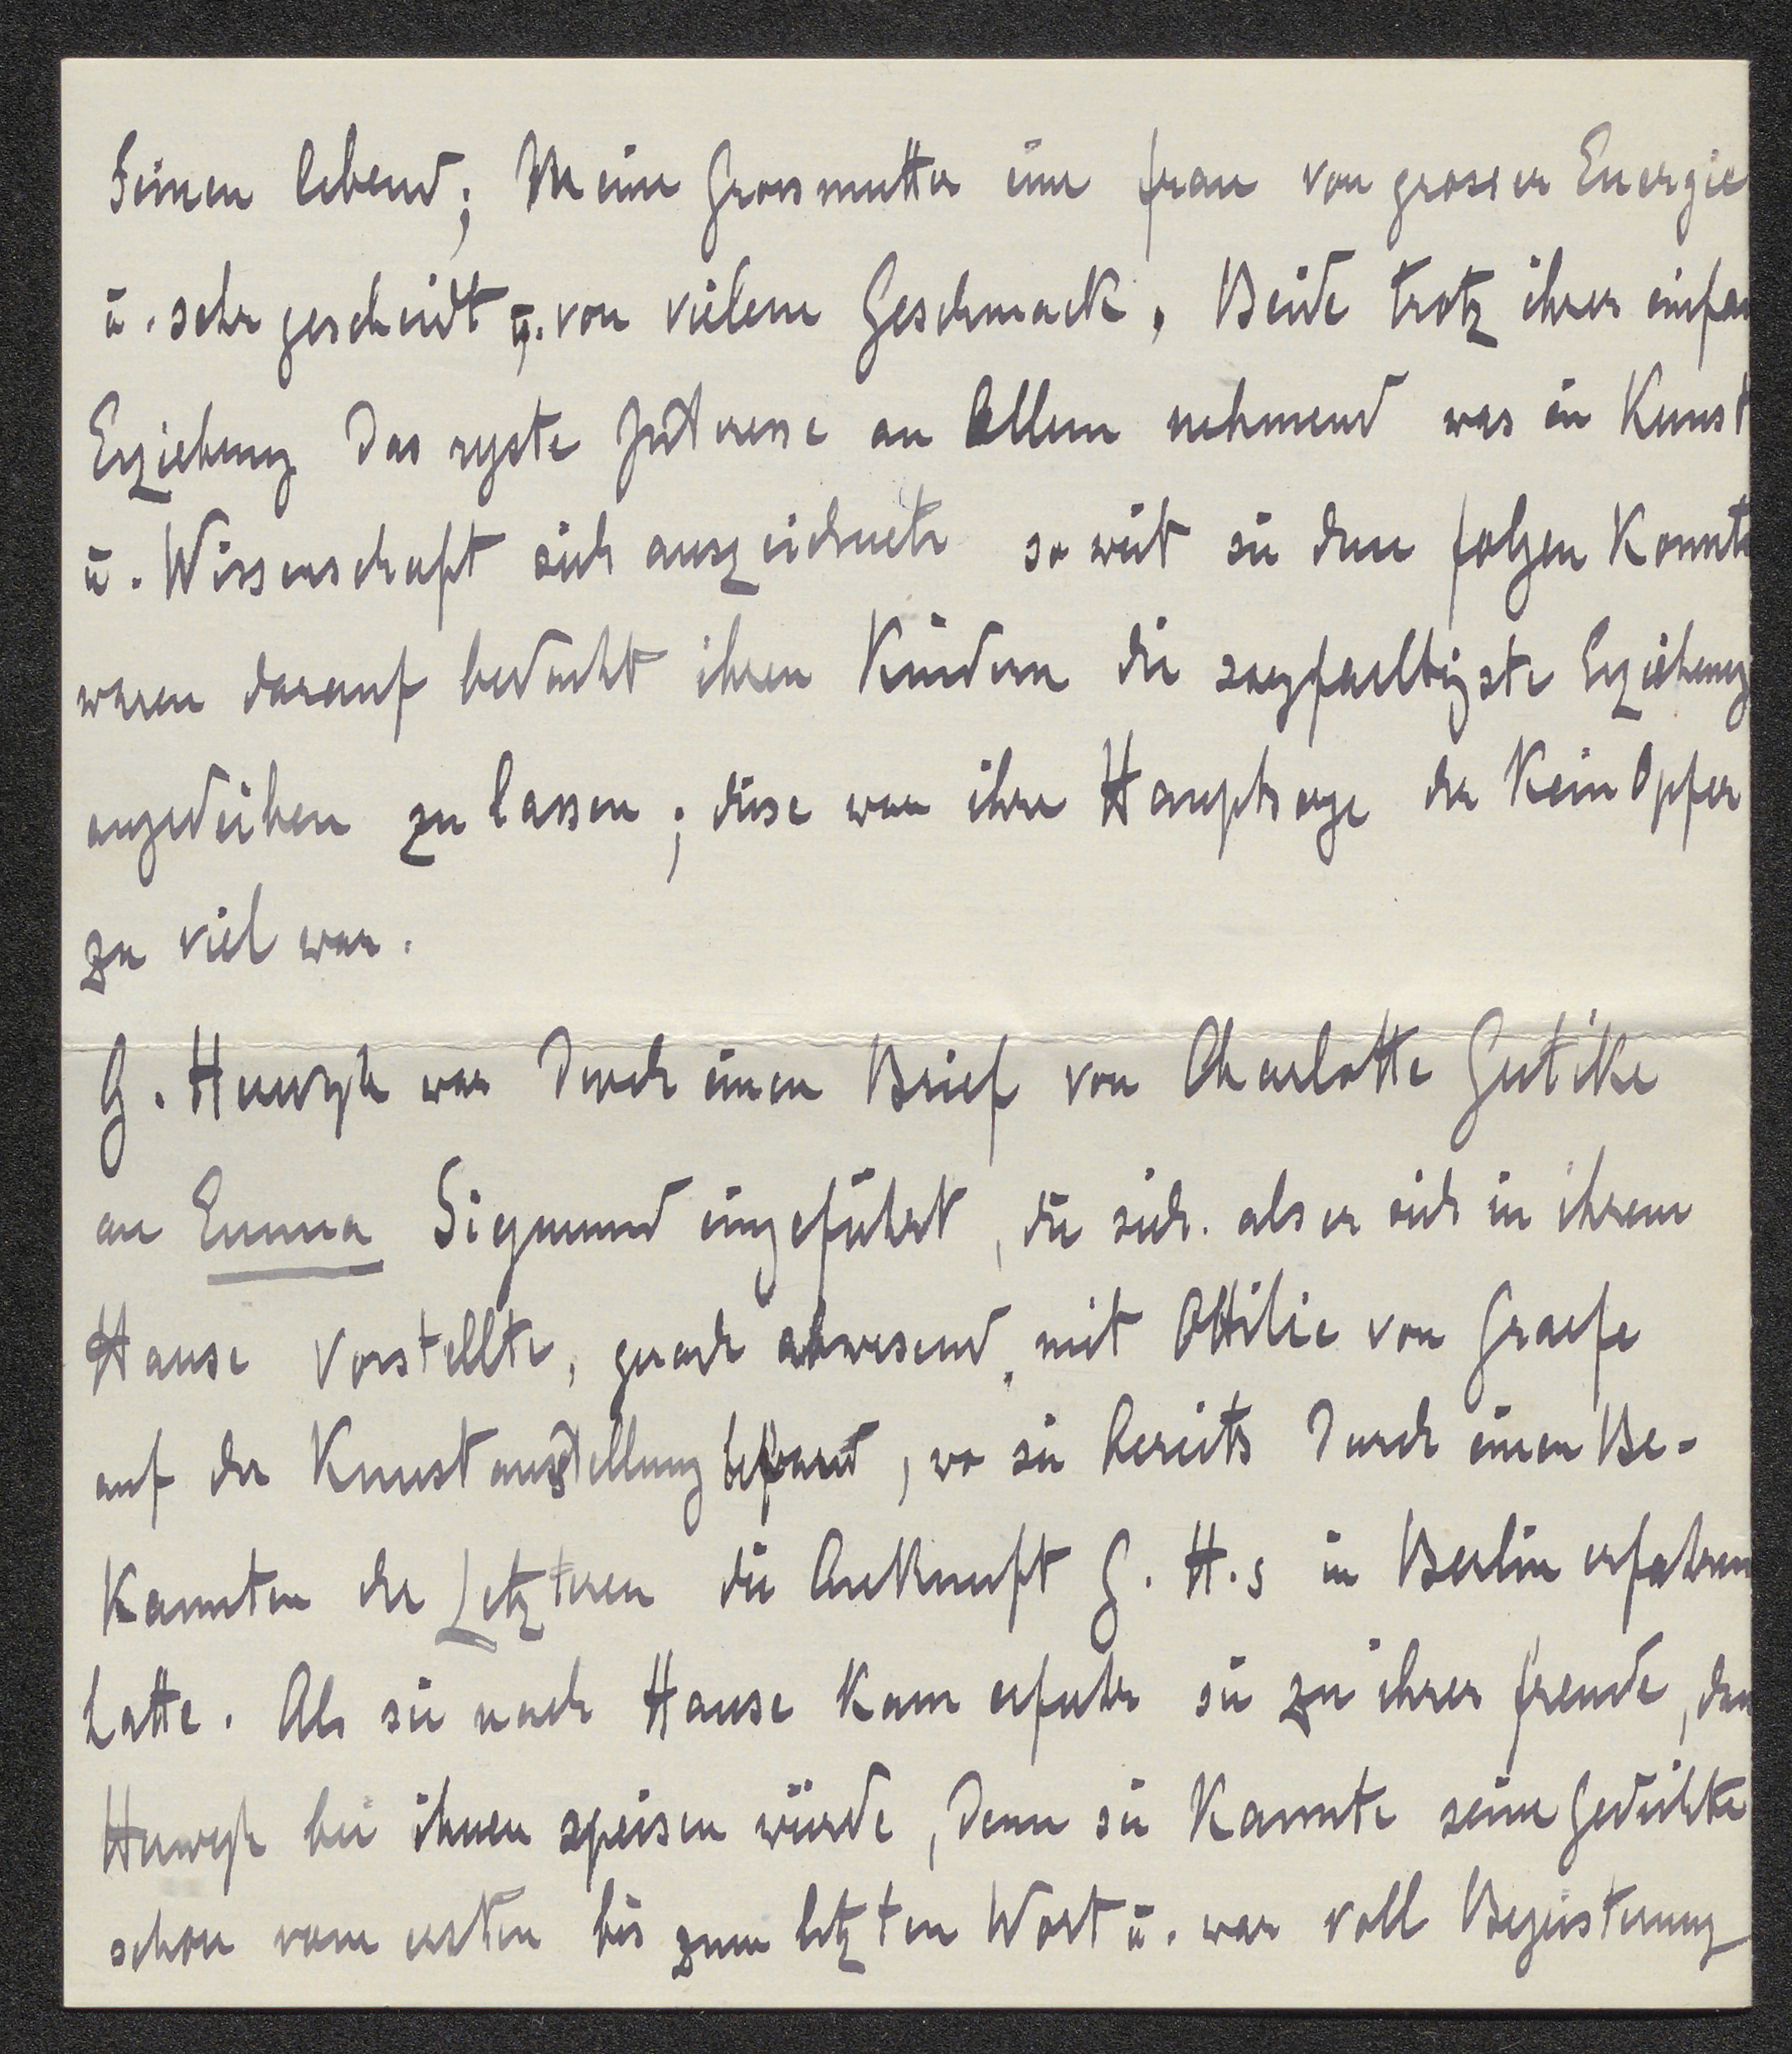 Seinen lebend; Meine Grossmutter eine Frau von grosser Energie
u. sehr gescheidt u. von vielem Geschmack. Beide trotz ihrer einfa
Erziehung das regste Interesse an Allem nehmend was in Kunst
u. Wissenschaft sich auszeichnete so weit sie dem folgen konnte
waren darauf bedacht ihren Kindern die sorgfaeltigste Erziehung
angedeihen zu lassen; diese war ihre Hauptsorge der kein Opfer
zu viel war.
G. Herwegh war durch einen Brief von Charlotte Gutike
an Emma Sigmund eingeführt, die sich als er sich in ihrem
Hause vorstellte, gerade abwesend, mit Ottilie von Graefe
auf der Kunstausstellung befand, wo sie bereits durch einen Be-
kannten der Letzteren die Ankunft G. H.s in Berlin erfahren
hatte. Als sie nach Hause kam erfuhr sie zu ihrer Freude, das
Herwegh bei ihnen speisen würde, denn sie kannte seine Gedichte
schon vom ersten bis zum letzten Wort u. war voll Begeisterung